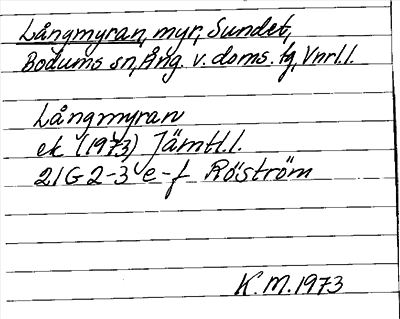 Långmyran, myr, Sundet,
Bodums sn, Ång. v. doms. fg, Vnrl.l.
Långmyran
ek (1973) Jämtl.l.
21G 2-3 e-f Röström
K.M. 1973